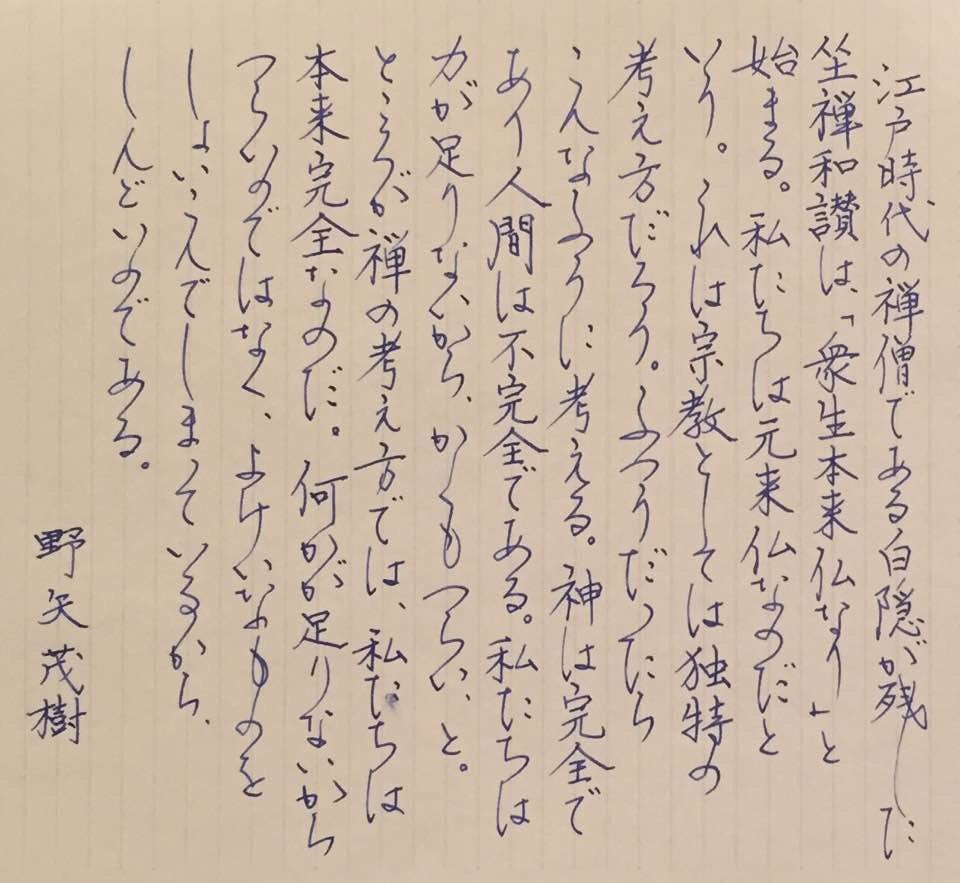 江戸時代の禅僧である白隠が残した
坐禅和讃は、「衆生本来仏なり」と
始まる。私たちは元来仏なのだと
いう。これは宗教としては独特の
考え方だろう。ふつうだったら
こんなふうに考える。神は完全で
あり人間は不完全である。私たちは
力が足りないから、かくもつらい、と。
ところが禅の考え方では、私たちは
本来完全なのだ。何かが足りないから
つらいのではなく、よけいなものを
しょいこんでしまっているから、
しんどいのである。
野矢茂樹